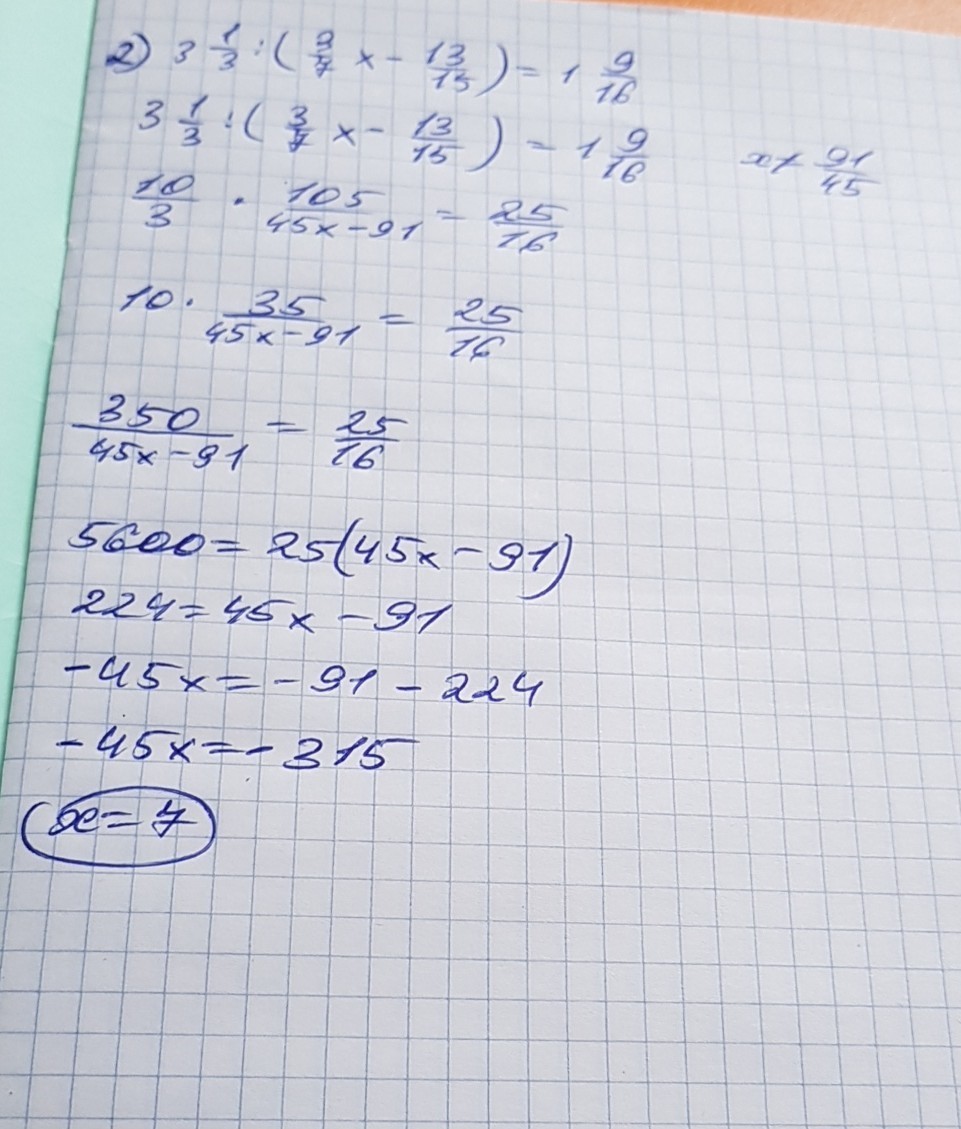 2) 3 1/3 : ( 3/7 x - 13/15 ) = 1 9/16
3 1/3 : ( 3/7 x - 13/15 ) = 1 9/16 x ≠ 91/45
10/3 · 105/(45x-91) = 25/16
10 · 35/(45x-91) = 25/16
350/(45x-91) = 25/16
5600 = 25(45x - 91)
224 = 45x - 91
-45x = -91 - 224
-45x = -315
x = 7